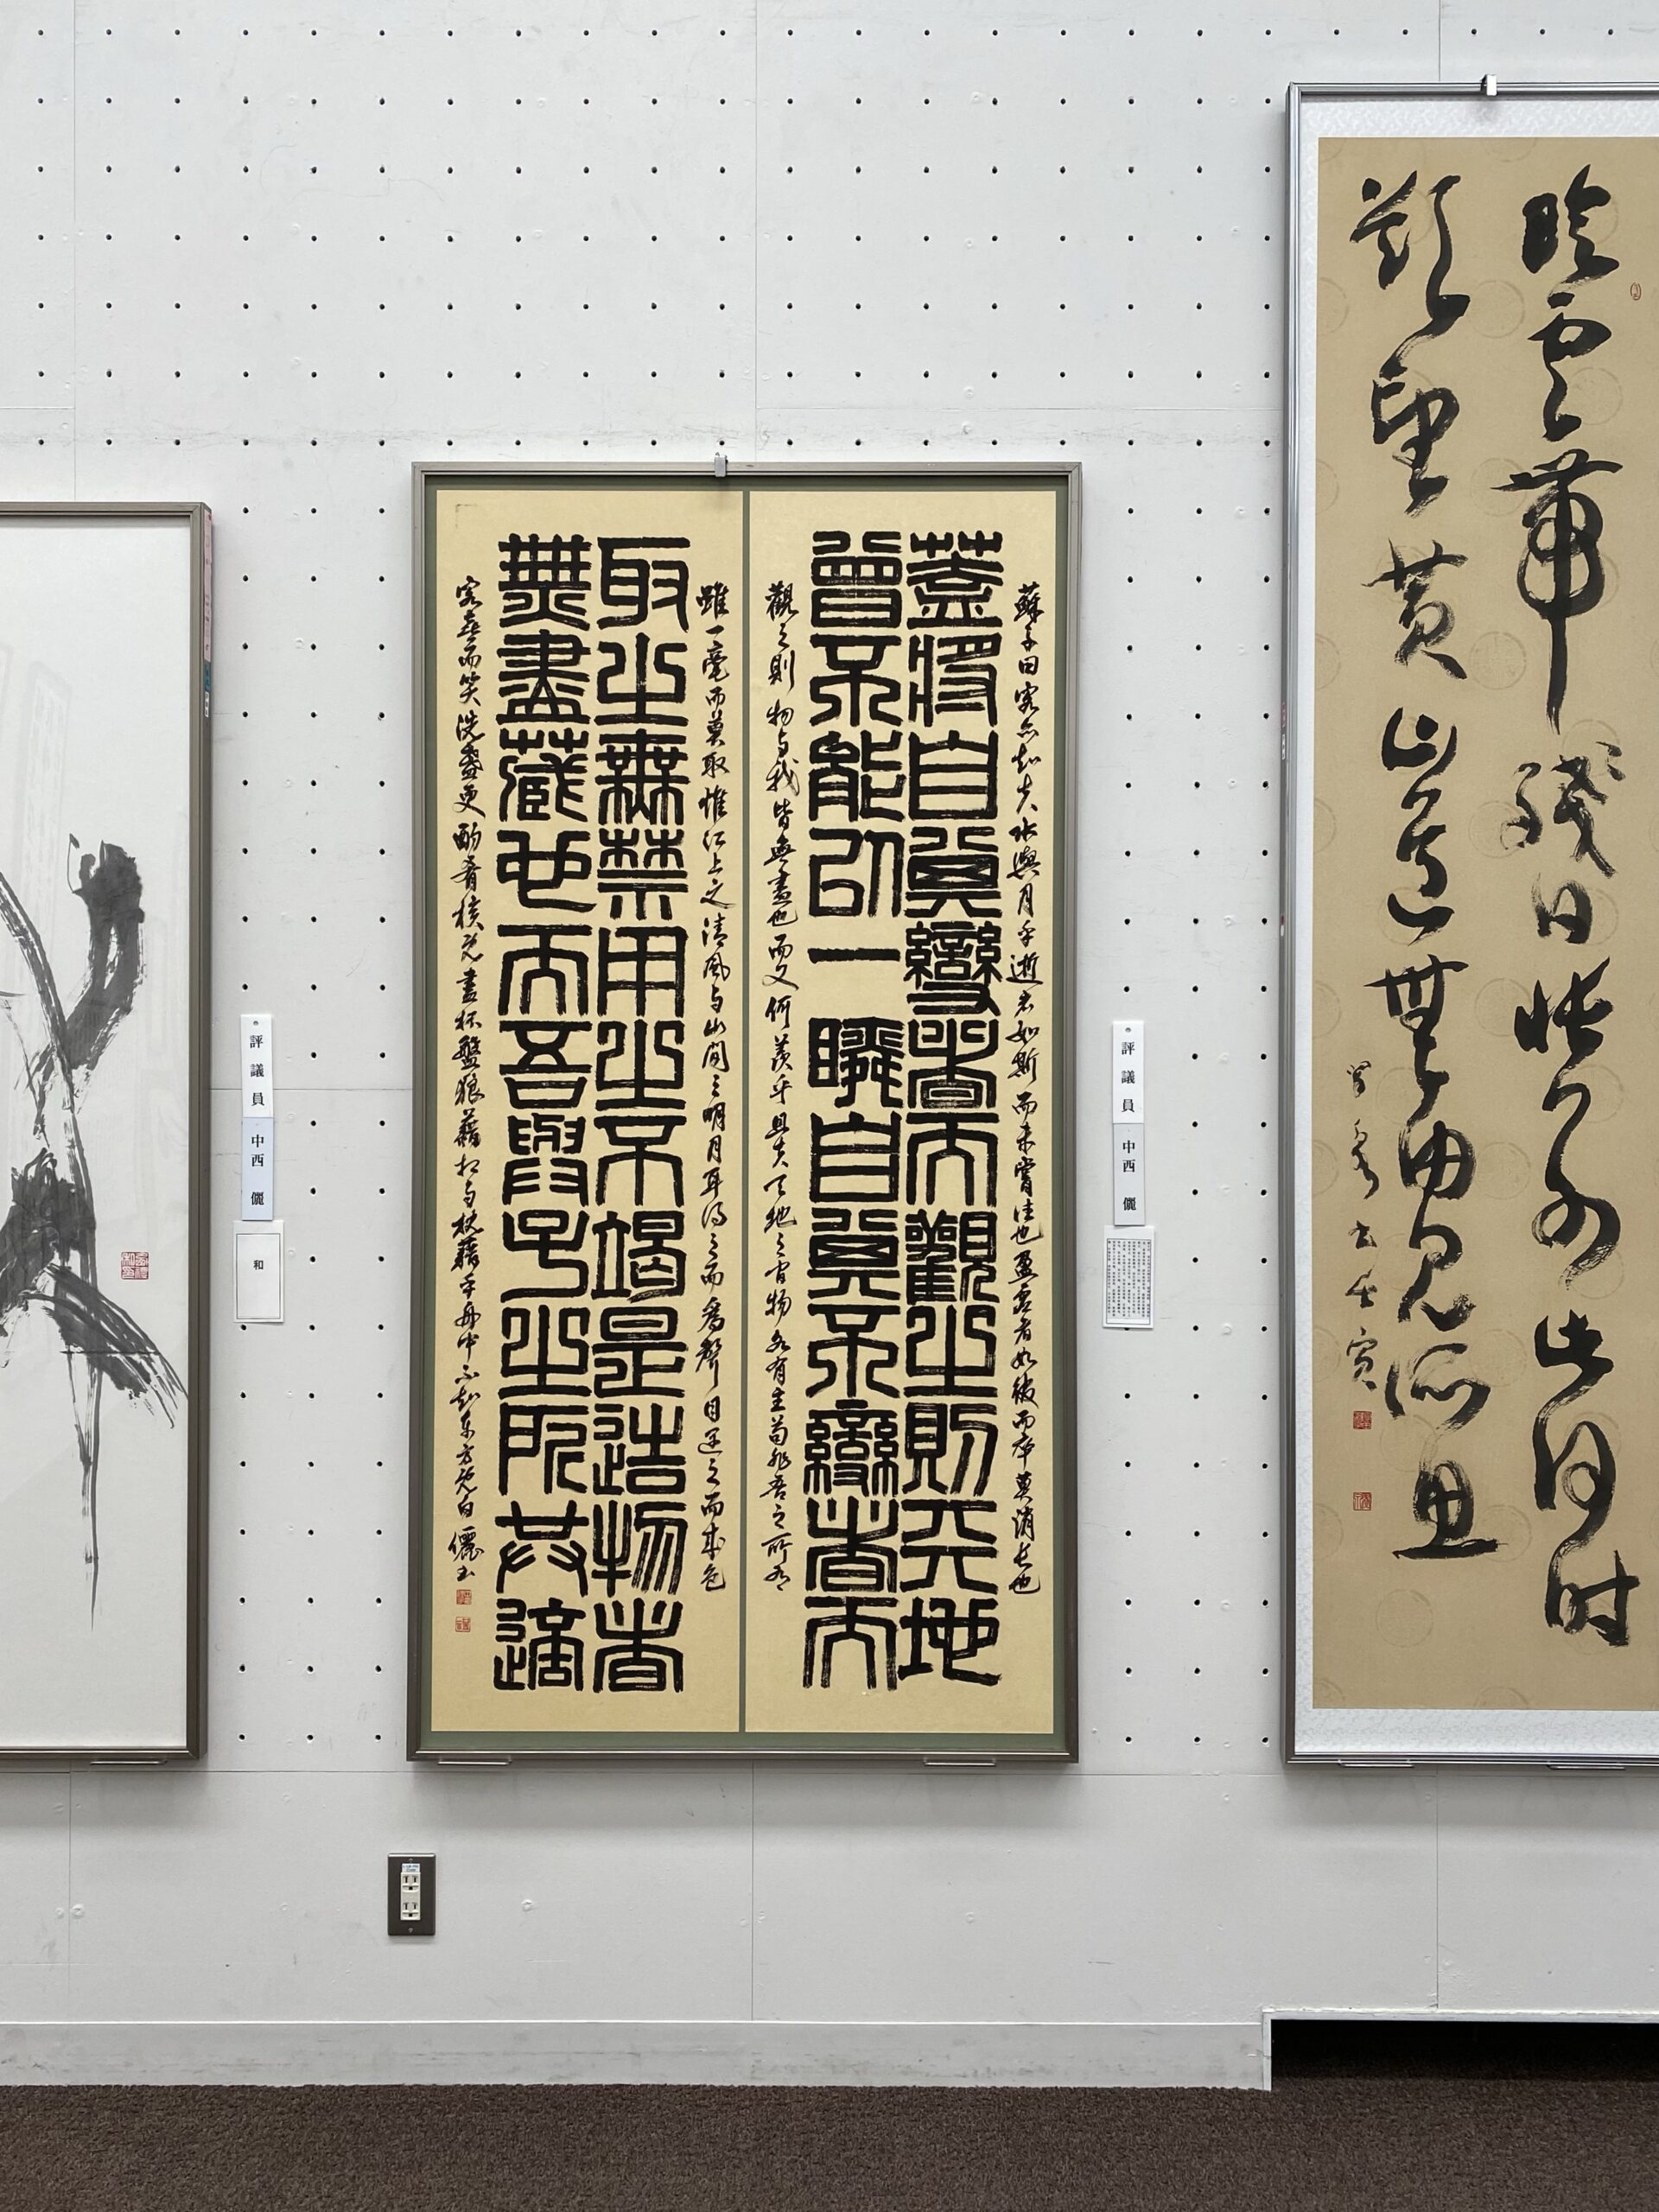 晩雲帯殘日悵別此何时
望黄山道無由見所思
蘇子曰客亦知夫水與月乎逝者如斯而未嘗往也盈虛者如彼而卒莫消長也
蓋將自其變者而觀之則天地
曾不能以一瞬自其不變者而
觀之則物与我皆無盡也而又何羨乎且夫天地之間物各有主苟非吾之所有
雖一毫而莫取惟江上之清風与山間之明月耳得之而為聲目遇之而成色
取之無禁用之不竭是造物者
無盡藏也而吾與子之所共適
客喜而笑洗盞更酌肴核既盡杯盤狼藉相与枕藉乎舟中不知東方既白 儷書
評議員 中西 儷
評議員 中西 儷
和